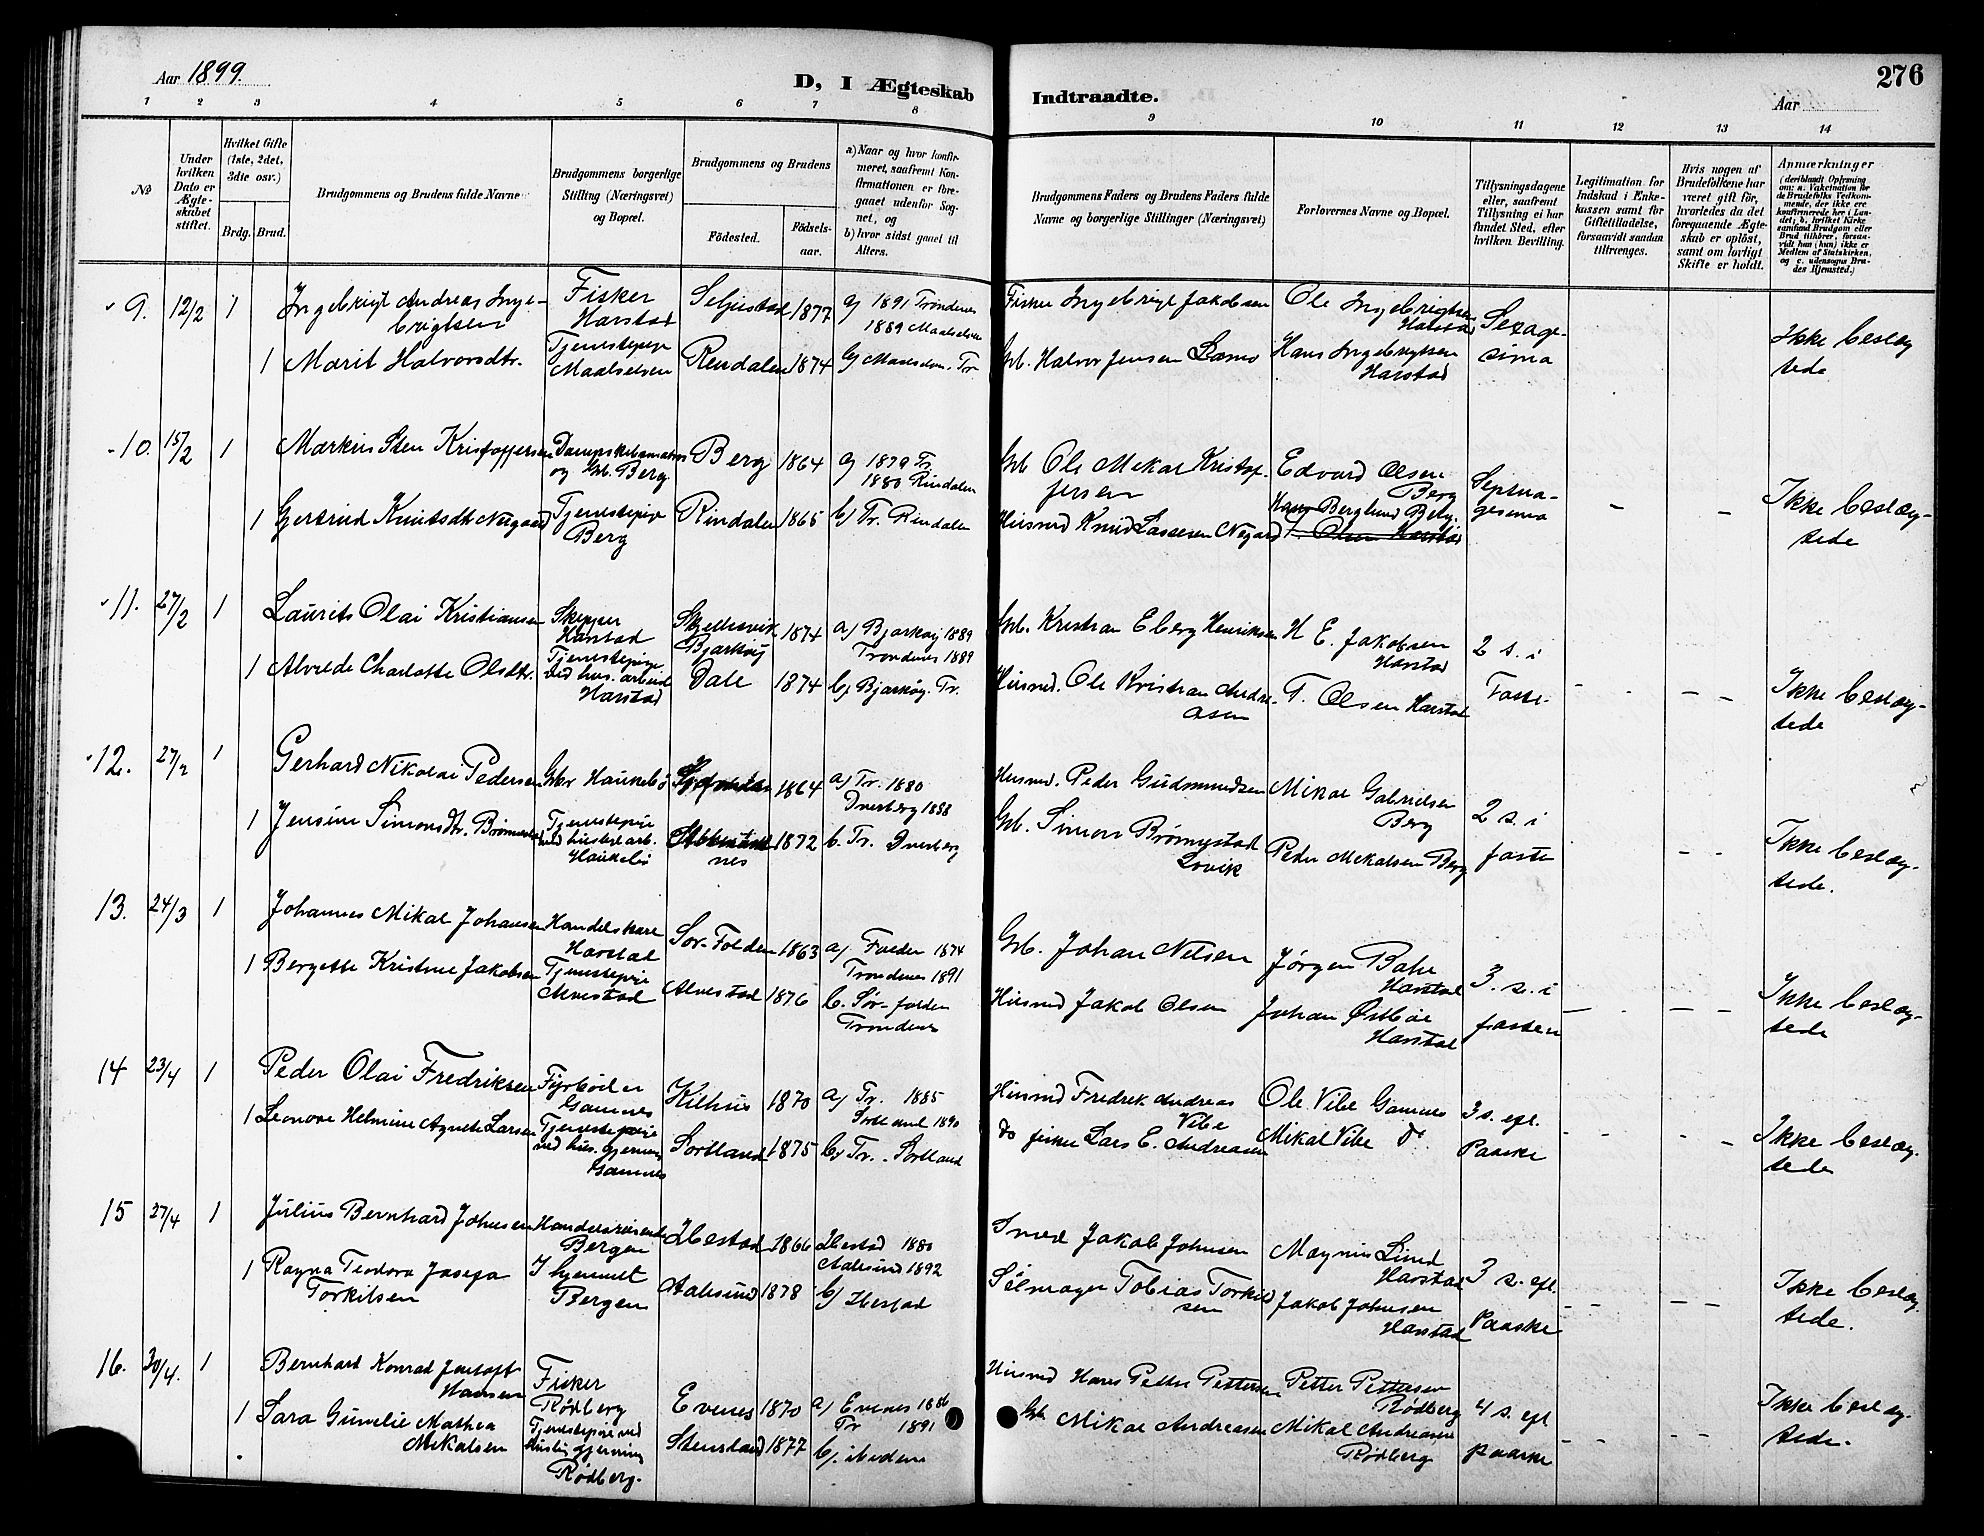 Aar 1899.
D, I Ægteskab
Indtraadte.
276
Aar
1 2 3 4 5 6 7 8 9 10 11 12 13 14
No
Under hvilken Dato er Ægte-skabet stiftet.
Hvilket Gifte (1ste, 2det, 3die osv.)
Brdg. Brud.
Brudgommens og Brudens fulde Navne
Brudgommens borgerlige Stilling (Næringsvei) og Bopæl.
Brudgommens og Brudens
Fødested.
Fødsels-aar.
a) Naar og hvor konfir-meret, saafremt Kon-firmationen er fore-gaaet udenfor Sog-net, og
b) hvor sidst gaaet til Alters.
Brudgommens Faders og Brudens Faders fulde Navne og borgerlige Stillinger (Næringsvei)
Forlovernes Navne og Bopæl.
Tillysningsdagene eller, saafremt Tillysning ei har fundet Sted, efter hvilken Bevilling.
Legitimation for Indskud i Enke-kassen samt for Giftetilladelse, forsaavidt saadan tiltrænges.
Hvis nogen af Brudefolkene har været gift før, hvorledes da det foregaaende Ægte-skab er opløst, samt om lovligt Skifte er holdt.
Anmærkninger
(deriblandt Oplysning om: a. Vakcination for de Brudefolks Vedkom-mende, der ikke ere konfirmerede her i Lan-det, b. hvilket Kirke-samfund Brudgom eller Brud tilhører, forsaa-vidt han (hun) ikke er Medlem af Statskirken, og c. udensogns Bru-des Hjemsted.)
9. 12/2 1 Ingebrigt Andreas Inge-brigtsen Fisker Harstad Seljestad 1877 a) 1891 Trondenes 1889 Maalselven Fisker Ingebrigt Jakobsen Ole Ingebrigtsen Harstad Sexage-sima Ikke beslæg-tede
1 Marit Halvorsdtr. Tjenestepige Maalselven Rendalen 1874 b) Maalselven. Tr. Gb. Halvor Jensen Hans Ingebrigtsen Harstad
10. 15/2 1 Markus Sten Kristoffersen og Gb. Berg Berg 1864 a) 1879 Tr. 1880 Rindalen Gb. Ole Mekal Kristof-fersen Edvard Olsen Berg Septua-gesima - - Ikke beslæg-tede
1 Gjertrud Knutsdtr Tjenestepige Berg Rindalen 1865 b) Tr. Rindalen Husmd Knud Lassesen Negard Hans Berglund Berg. T. Olsen Harstad
11. 27/2 1 Laurits Olai Kristiansen Skipper Harstad Bjarkøy 1874 a) Bjarkøy 1889 Trondenes 1889 Gb. Kristian Eberg Henriksen H E. Jakobsen Harstad 2 s. i Faste. - - - - Ikke beslæg-tede
1 Alvilde Charlotte Olsdtr. Tjenestepige ved hus. arbeid Harstad Dale 1874 b) Bjarkøy. Tr. Husmd. Ole Kristian Andre-asen T. Olsen Harstad
12. 27/2 1 Gerhard Nikolai Pedersen Gbr Haukebø 1864 a) Tr. 1880 Dverberg 1888 Husmd. Peder Gudmundsen Mikal Gabrielsen Berg 2 s. i faste - - Ikke beslæg-tede.
1 Jensine Simonsdtr. Tjenestepige ved huslidt arb. Haukebø 1872 b. Tr. Dverberg Gb. Simon Lovik Peder Mekalsen Berg
13. 24/3 1 Johannes Mikal Johansen Harstad Sør-Folden 1863 a) Folden 1874 Trondenes 1891 Gb. Johan Nilsen Jørgen Harstad 3. s. i fasten - - - - Ikke beslæg-tede
1 Bergette Kristine Jakobsen Tjenestepige Alvestad Alvestad 1876 b. Sør-folden Trondenes Husmd Jakob Olsen Johan Harstad
14 23/4 1 Peder Olai Fredriksen Fyrbøder Gamnes Kilhus 1870 a) Tr. 1885 1890 Husmd Fredrik Andreas Vibe Ole Vibe Gamnes 3 s. eft. Paaske - - - - Ikke beslæg-tede
1 Leonore Helmine Agnete Larsen Tjenestepige ved hus. gjerning Gamnes Sortland 1875 b) Tr. Sortland do fisker Lars E. Andreasen Mikal Vibe do
15 27/4 1 Julius Bernhard Johnsen Handelsreisende Bergen Ibestad 1866 Ibestad 1880 Aalesund 1892 Smed Jakob Johnsen Magnus Lind Harstad 3 s. eft. Paaske - - - - Ikke beslæg-tede.
1 Ragna Teodora Josefa Torkilsen I hjemmet Bergen Aalesund 1878 b) Ibestad Tobias Torkild-sen Jakob Johnsen Harstad
16. 30/4. 1 Bernhart Konrad Jentoft Hansen Fisker Rødberg Evenes 1870 a) Evenes 1886 Tr 1891 Husmd Hans Petter Pettersen Petter Pettersen Rødberg 4 s. eft paaske - - - - Ikke beslæg-tede.
1 Sara Gunelie Mathea Mikalsen Tjenestepige ved huslig gjerning Rødberg. Stenstad 1877 b). ibidem Gb. Mikal Andreasen Mikal Andreasen Rødberg